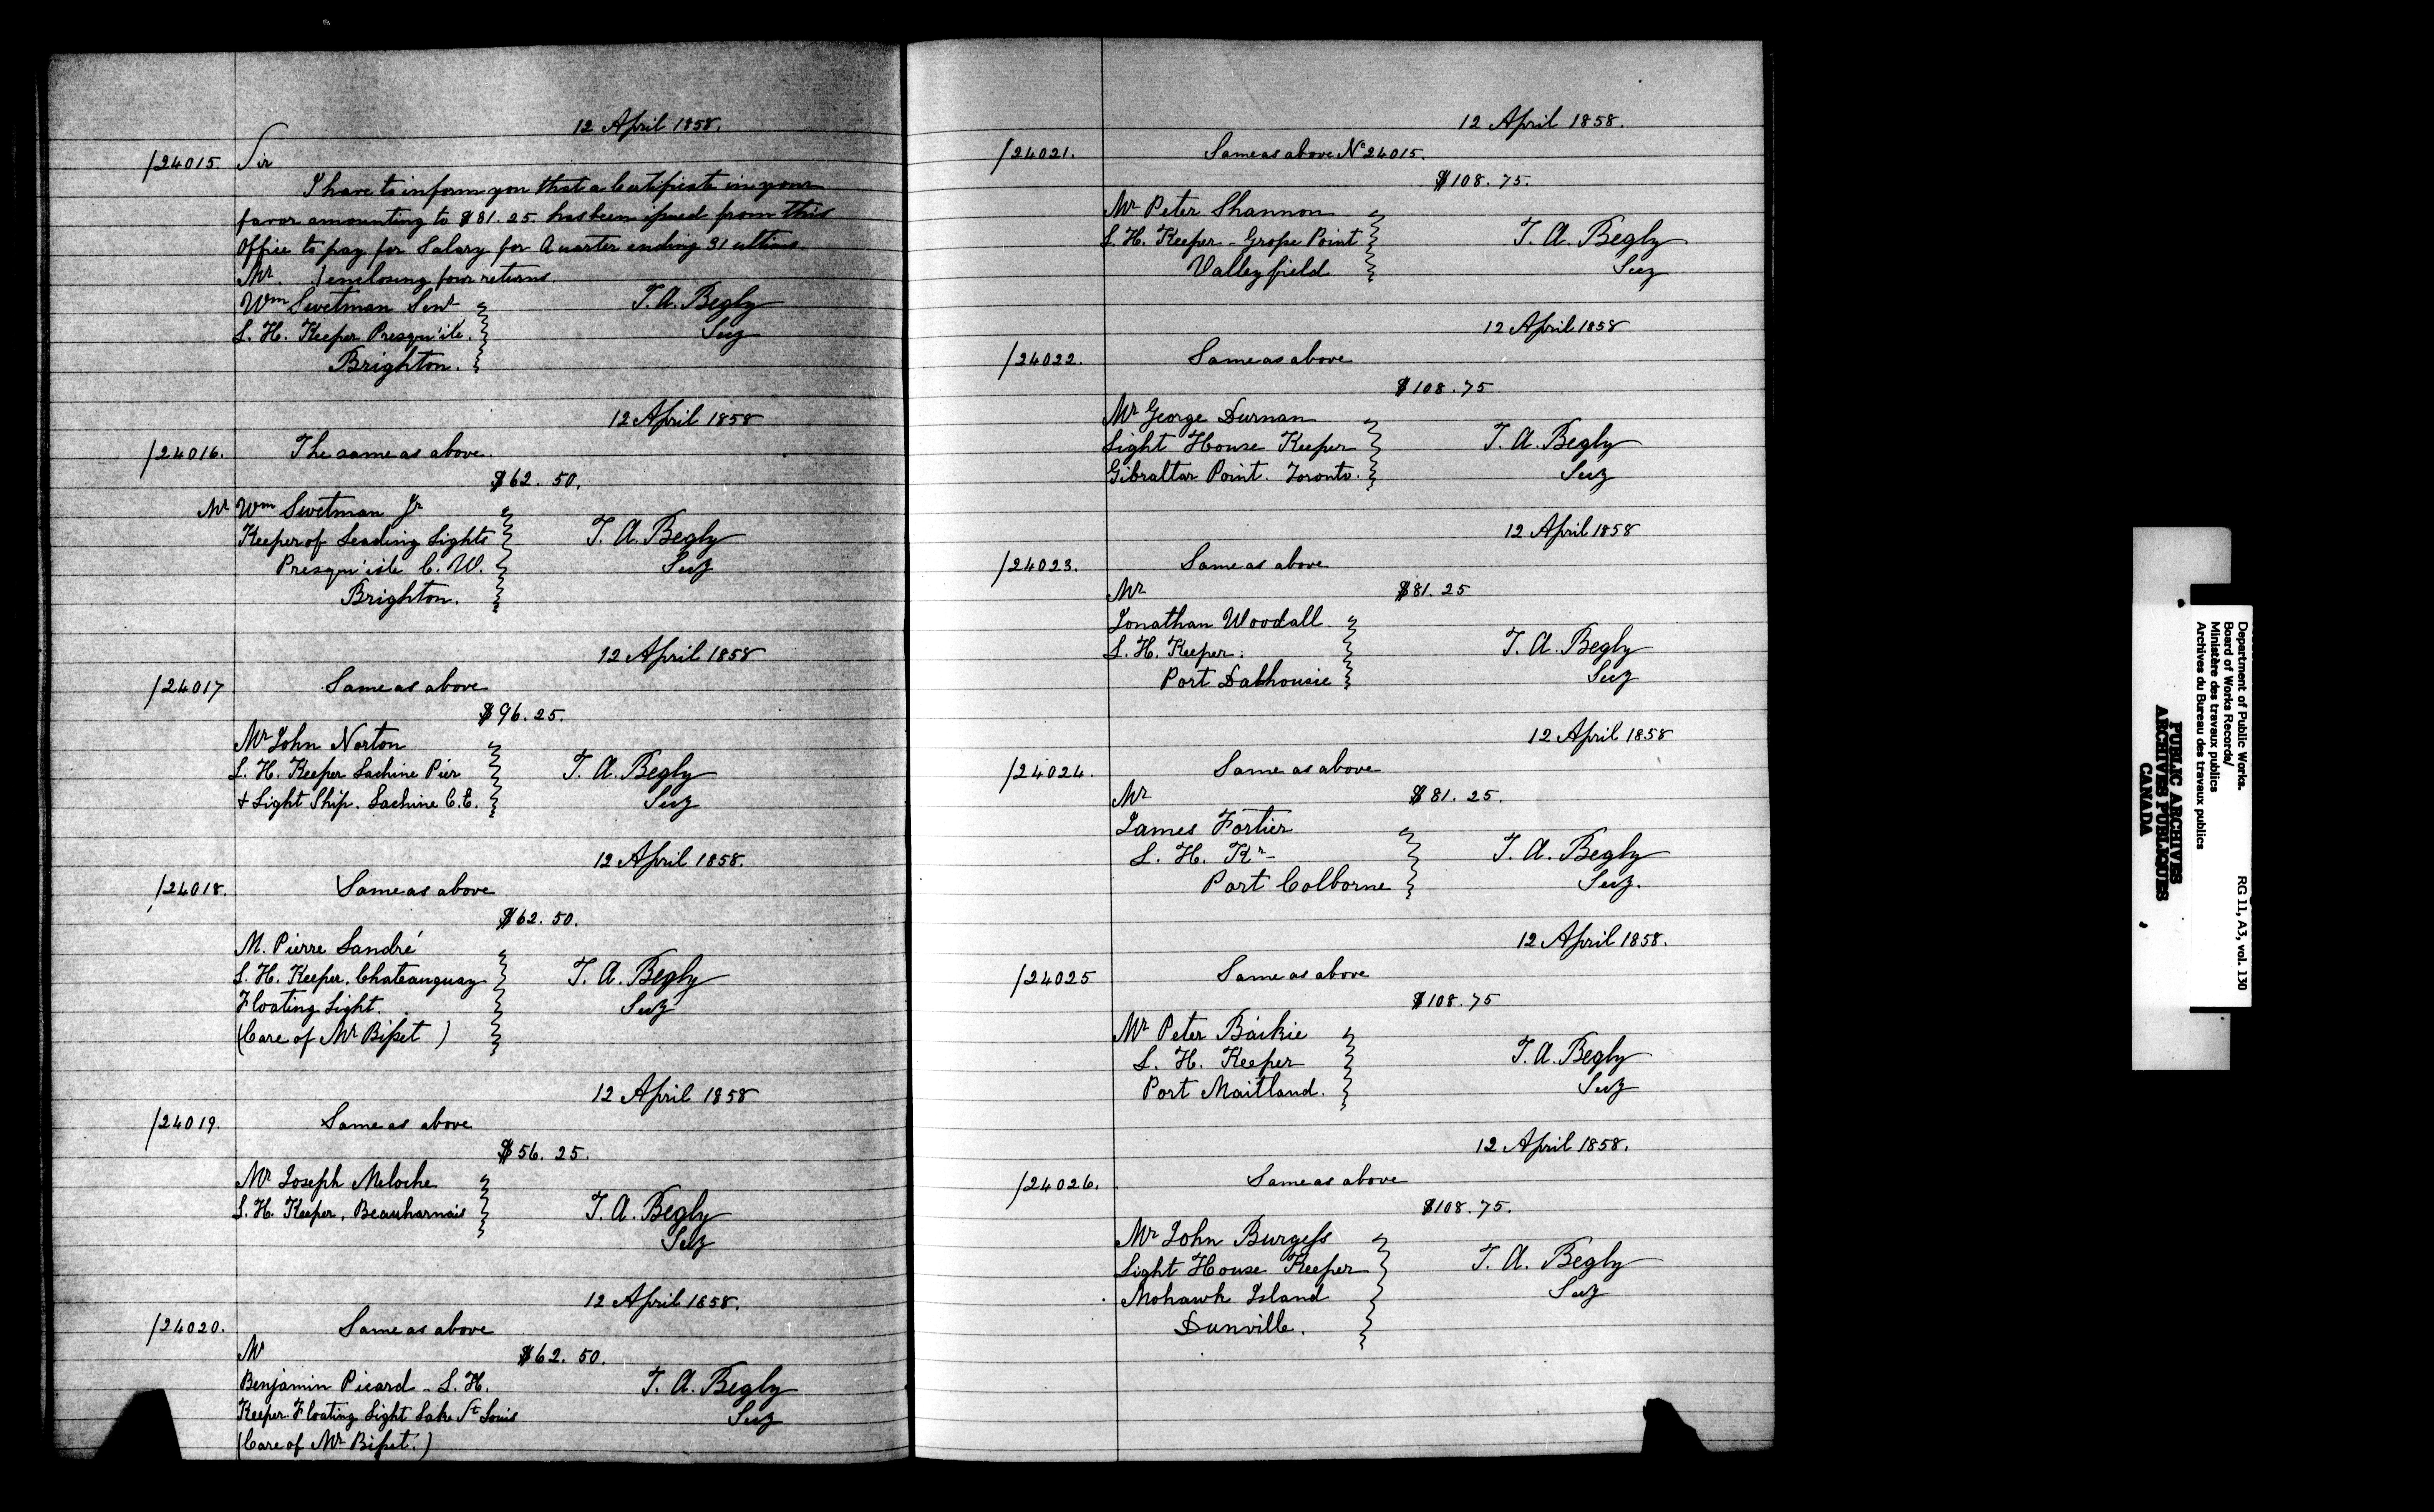 12 April 1858.
/24015. Sir
I have to inform you that a Certificate in your
favor amounting to $81.25. has been issued from this
Office to pay for Salary for Quarter ending 31 ultimo
Mr. ) enclosing four returns.
Wm Swetman Senr
L. H. Keeper Presqu'ile.
Brighton.
T. A. Begly
Secy
12 April 1858
/24016. The same as above.
$62. 50.
Mr Wm Swetman Jr
Keeper of Leading Lights
Presqu'isle C. W.
Brighton.
T. A. Begly
Secy
12 April 1858
/24017 Same as above
$96. 25.
Mr John Norton
L. H. Keeper Lachine Pier
+ Light Ship. Lachine C.E.
T. A. Begly
Secy
12 April 1858.
/24018. Same as above
$62. 50.
M. Pierre Landré
L. H. Keeper, Chateauguay
Floating Light.
(Care of Mr Bisset )
T. A. Begly
Secy
12 April 1858
/24019. Same as above
$56. 25.
Mr Joseph Meloche
L. H. Keeper, Beauharnois
T. A. Begly
Secy
12 April 1858.
/24020. Same as above
Mr $62. 50.
Benjamin Picard - L. H.
Keeper Floating Light Lake St Louis
(Care of Mr Bisset.)
T. A. Begly
Secy
12 April 1858.
/24021. Same as above No 24015.
$108. 75.
Mr Peter Shannon
L. H. Keeper - Grosse Point
Valleyfield
T. A. Begly
Secy
12 April 1858
/24022. Same as above
$108. 75
Mr George Durnan
Light House Keeper
Gibraltar Point. Toronto.
T. A. Begly
Secy
12 April 1858
/24023. Same as above
Mr $81. 25
Jonathan Woodall
L. H. Keeper.
Port Dalhousie
T. A. Begly
Secy
12 April 1858
/24024. Same as above
Mr $81. 25.
James Fortier
L. H. Kr -
Port Colborne
T. A. Begly
Secy.
12 April 1858.
/24025 Same as above
$108. 75
Mr Peter Baikie
L. H. Keeper
Port Maitland.
T. A. Begly
Secy
12 April 1858.
/24026. Same as above
$108. 75.
Mr John Burgess
Light House Keeper
Mohawk Island
Dunville.
T. A. Begly
Secy
Department of Public Works. RG 11, A3, vol. 130
Board of Works Records/
Ministère des travaux publics
Archives du Bureau des travaux publics
PUBLIC ARCHIVES
ARCHIVES PUBLIQUES
CANADA